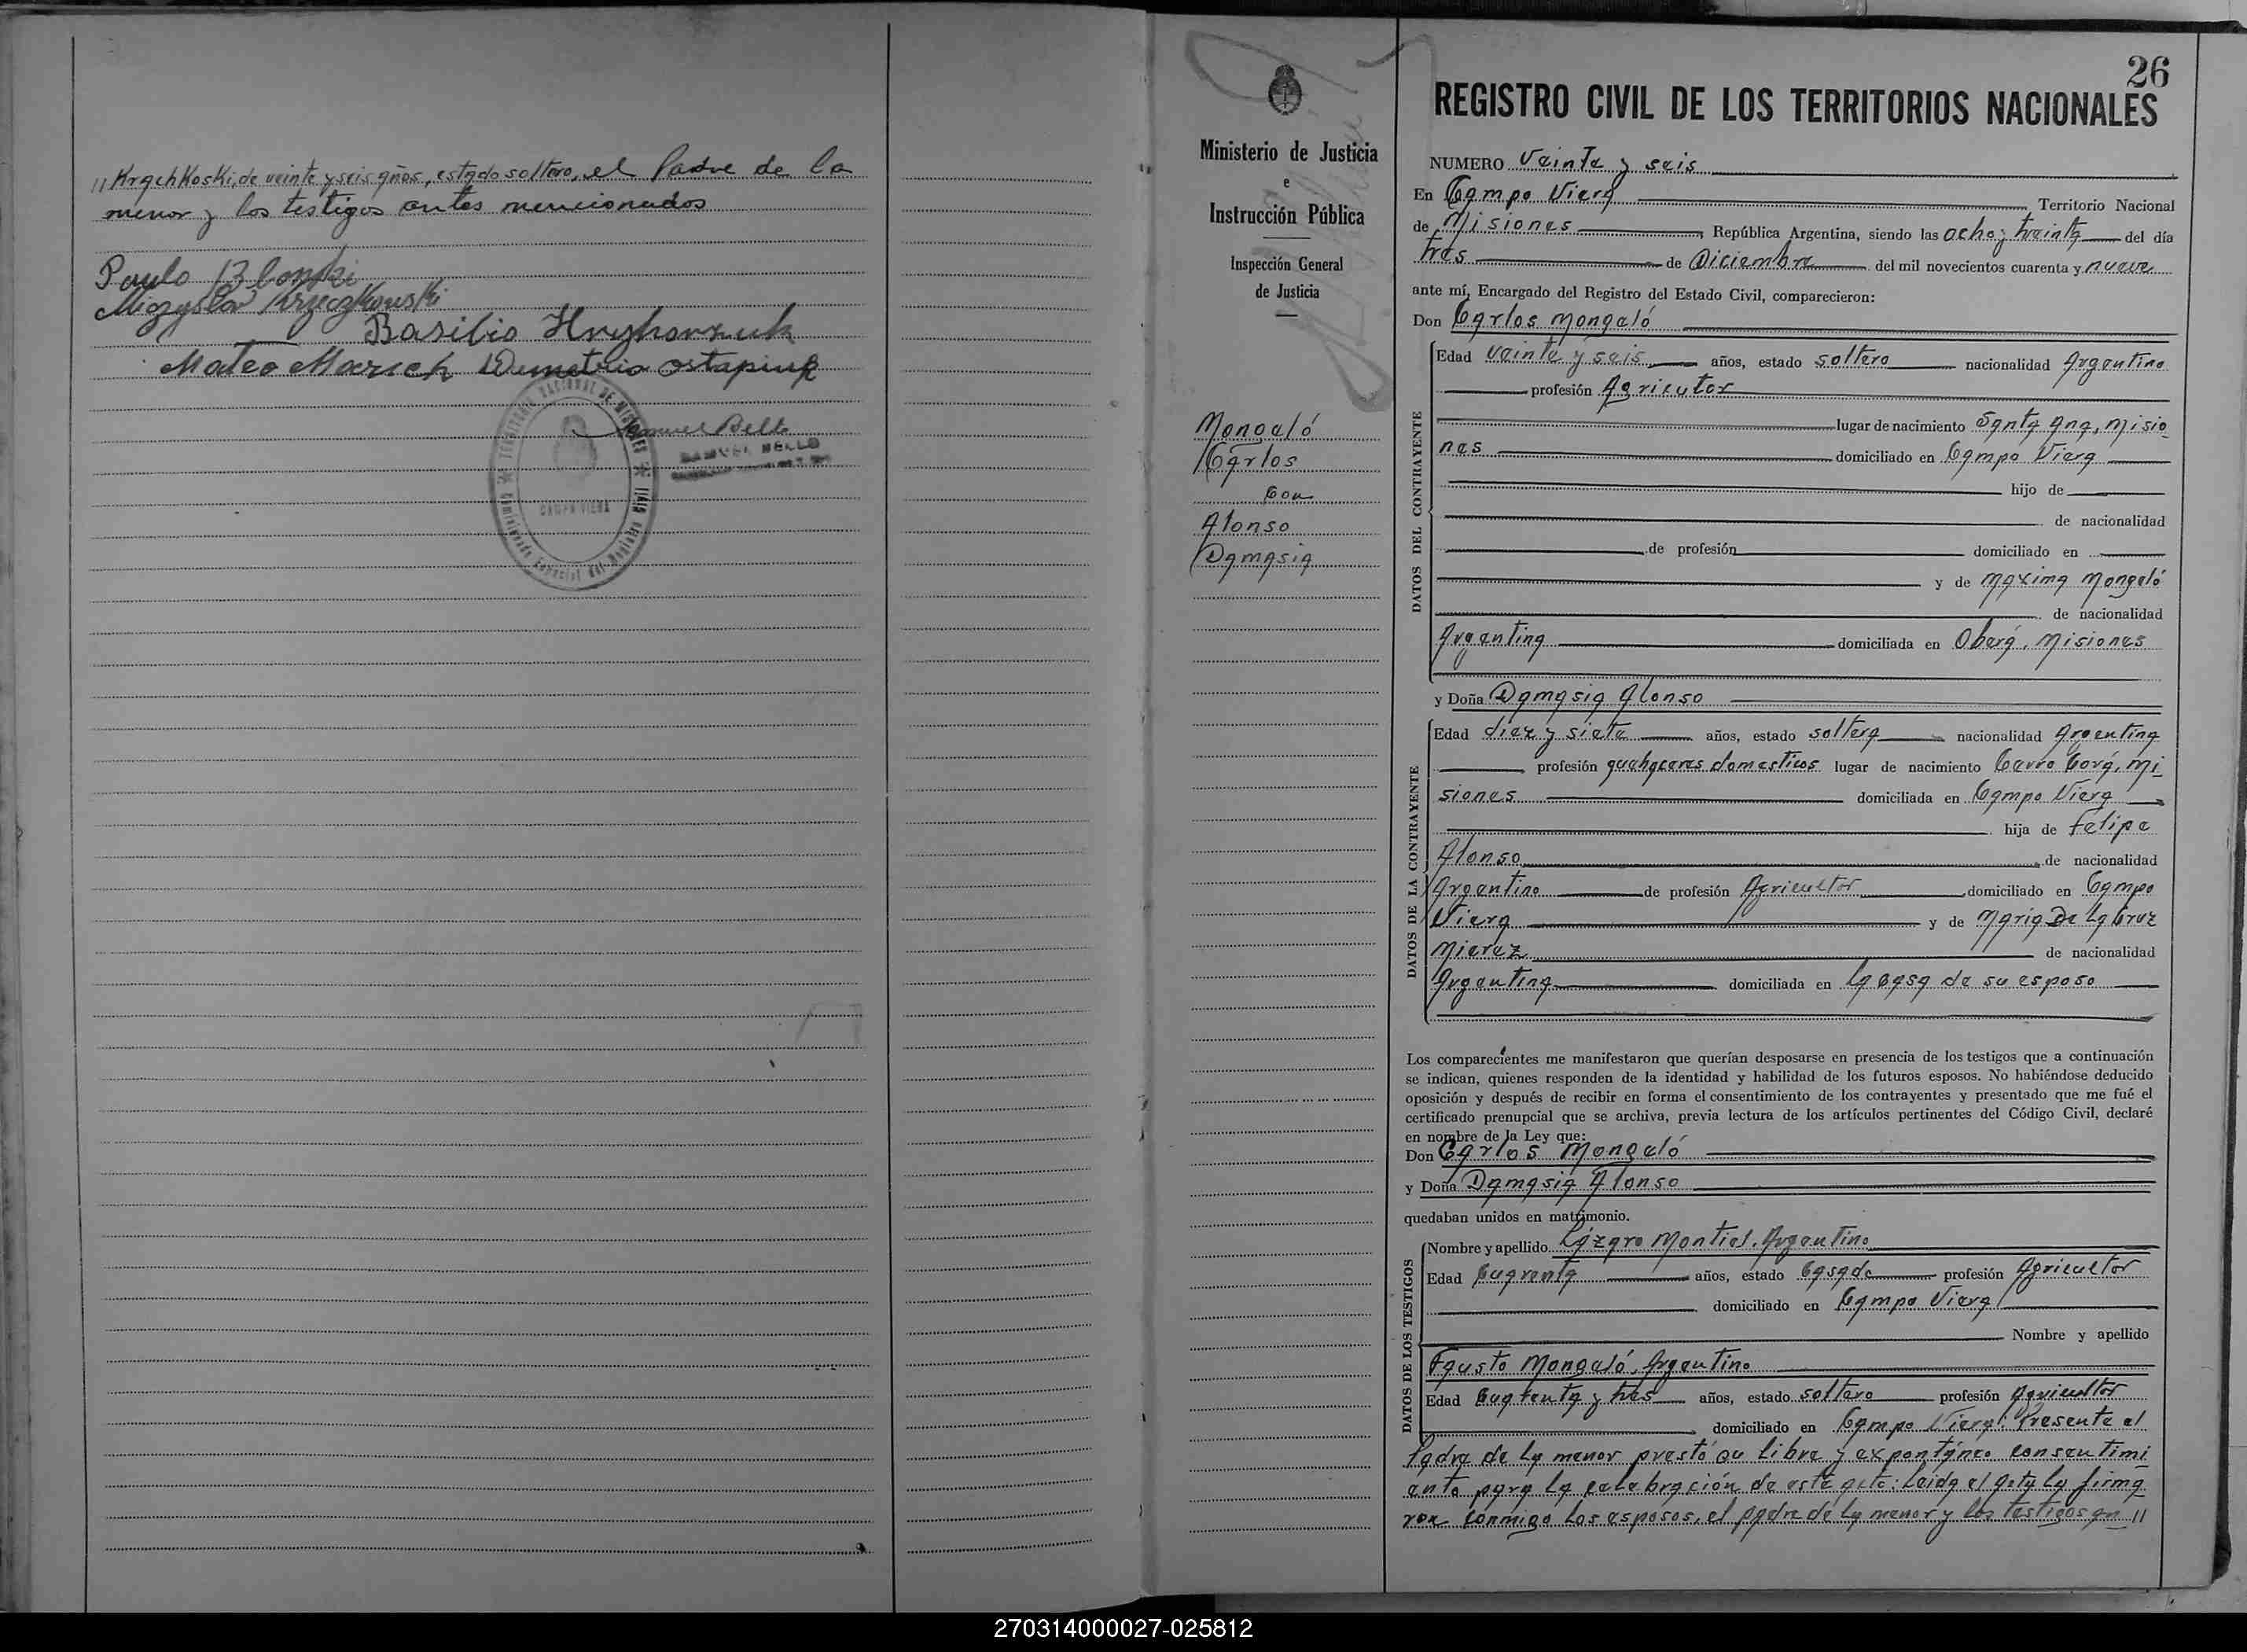 // Krachkoski, de veinte y seis años, estado soltero, el Padre de la
menor y los testigos antes mencionados
Paulo
Basilio Hryhorzuk
Mateo Marich Demetrio Ostapiuk
Samuel Bello
SAMUEL BELLO
TERRITORIO NACIONAL DE MISIONES
CAMPO VIERA
Ministerio de Justicia
e
Instrucción Pública
Inspección General
de Justicia
Mongeló
Carlos
con
Alonso
Damasia
26
REGISTRO CIVIL DE LOS TERRITORIOS NACIONALES
NUMERO Veinte y seis
En Campo Viera Territorio Nacional
de Misiones República Argentina, siendo las ocho y treinta del día
tres de Diciembre del mil novecientos cuarenta y nueve
ante mí, Encargado del Registro del Estado Civil, comparecieron:
Don Carlos Mongeló
DATOS DEL CONTRAYENTE
Edad veinte y seis años, estado soltero nacionalidad Argentino
profesión Agricutor
lugar de nacimiento Santa Ana, Misio
nes domiciliado en Campo Viera
hijo de
de nacionalidad
de profesión domiciliado en
y de Maxima Mongeló
de nacionalidad
Argentina domiciliada en Oberá, Misiones
y Doña Damasia Alonso
DATOS DE LA CONTRAYENTE
Edad diez y siete años, estado soltera nacionalidad Argentina
profesión quehaceres domesticos lugar de nacimiento Cerro Corá, Mi
siones domiciliada en Campo Viera
hija de Felipe
Alonso de nacionalidad
Argentino de profesión Agricultor domiciliado en Campo
Viera y de Maria De La Cruz
Mierez de nacionalidad
Argentina domiciliada en la casa de su esposo
Los comparecientes me manifestaron que querían desposarse en presencia de los testigos que a continuación
se indican, quienes responden de la identidad y habilidad de los futuros esposos. No habiéndose deducido
oposición y después de recibir en forma el consentimiento de los contrayentes y presentado que me fué el
certificado prenupcial que se archiva, previa lectura de los artículos pertinentes del Código Civil, declaré
en nombre de la Ley que:
Don Carlos Mongeló
y Doña Damasia Alonso
quedaban unidos en matrimonio.
DATOS DE LOS TESTIGOS
Nombre y apellido Lázaro Montiel, Argentino
Edad Cuarenta años, estado Casado profesión Agricultor
domiciliado en Campo Viera
Nombre y apellido
Fausto Mongeló, Argentino
Edad Cuarenta y tres años, estado soltero profesión Agricultor
domiciliado en Campo Viera. Presente el
Padre de la menor prestó su libre y expontáneo consentimi
ento para la celebración de este acto: Leida el acta la firma
ron conmigo los esposos, el padre de la menor y los testigos an //
270314000027-025812